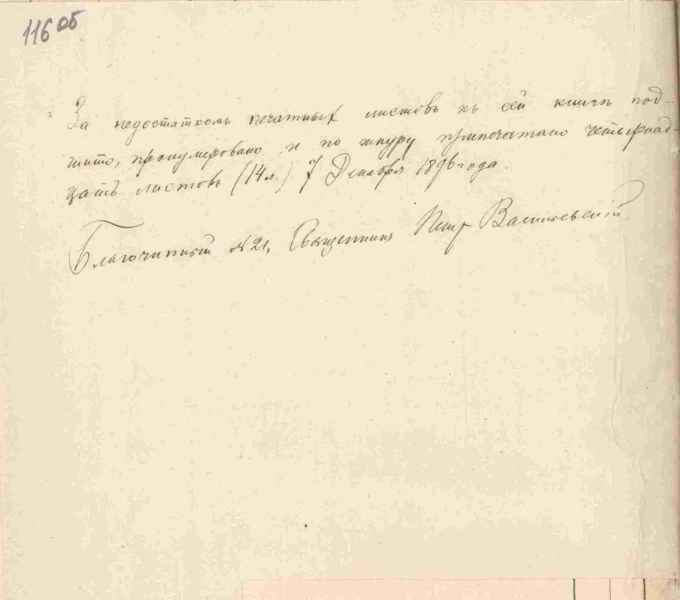 116 об
За недостаткомъ печатныхъ листовъ къ сей книгѣ под-
шито, пронумеровано и по шнуру припечатано четырнад-
цать листовъ (14 л.) 7 Декабря 1896 года.
Благочинный №21, Священникъ Петр Василевский